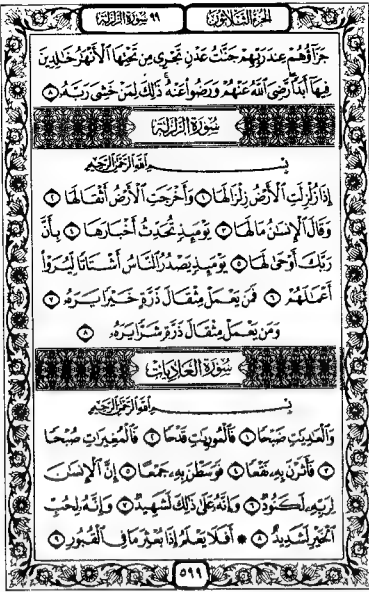 الجزء الثلاثون ٩٩ سورة الزلزلة
جَزَآؤُهُمْ عِندَ رَبِّهِمْ جَنَّـٰتُ عَدْنٍ تَجْرِى مِن تَحْتِهَا ٱلْأَنْهَـٰرُ خَـٰلِدِينَ
فِيهَآ أَبَدًا رَّضِىَ ٱللَّهُ عَنْهُمْ وَرَضُوا۟ عَنْهُ ذَٰلِكَ لِمَنْ خَشِىَ رَبَّهُۥ ٨
سُورَةُ الزَّلْزَلَةِ
بِسْمِ ٱللَّهِ ٱلرَّحْمَـٰنِ ٱلرَّحِيمِ
إِذَا زُلْزِلَتِ ٱلْأَرْضُ زِلْزَالَهَا ١ وَأَخْرَجَتِ ٱلْأَرْضُ أَثْقَالَهَا ٢
وَقَالَ ٱلْإِنسَـٰنُ مَا لَهَا ٣ يَوْمَئِذٍ تُحَدِّثُ أَخْبَارَهَا ٤ بِأَنَّ
رَبَّكَ أَوْحَىٰ لَهَا ٥ يَوْمَئِذٍ يَصْدُرُ ٱلنَّاسُ أَشْتَاتًا لِّيُرَوْا۟
أَعْمَـٰلَهُمْ ٦ فَمَن يَعْمَلْ مِثْقَالَ ذَرَّةٍ خَيْرًا يَرَهُۥ ٧
وَمَن يَعْمَلْ مِثْقَالَ ذَرَّةٍ شَرًّا يَرَهُۥ ٨
سُورَةُ العَادِيَاتِ
بِسْمِ ٱللَّهِ ٱلرَّحْمَـٰنِ ٱلرَّحِيمِ
وَٱلْعَـٰدِيَـٰتِ ضَبْحًا ١ فَٱلْمُورِيَـٰتِ قَدْحًا ٢ فَٱلْمُغِيرَٰتِ صُبْحًا
٣ فَأَثَرْنَ بِهِۦ نَقْعًا ٤ فَوَسَطْنَ بِهِۦ جَمْعًا ٥ إِنَّ ٱلْإِنسَـٰنَ
لِرَبِّهِۦ لَكَنُودٌ ٦ وَإِنَّهُۥ عَلَىٰ ذَٰلِكَ لَشَهِيدٌ ٧ وَإِنَّهُۥ لِحُبِّ
ٱلْخَيْرِ لَشَدِيدٌ ٨ ۞ أَفَلَا يَعْلَمُ إِذَا بُعْثِرَ مَا فِى ٱلْقُبُورِ ٩
٥٩٩